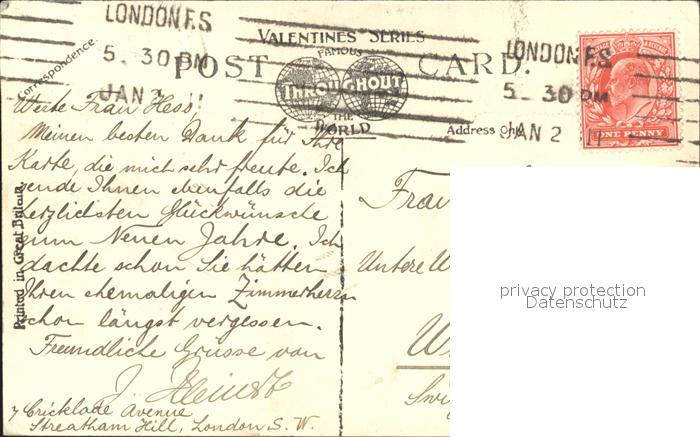 LONDON F.S
5. 30 PM
JAN 2 11
LONDON F.S.
5. 30 PM
JAN 2 11
VALENTINES SERIES
FAMOUS
POST CARD.
THROUGHOUT
THE
WORLD
Correspondence
Address Only
ONE PENNY
Printed in Great Britain
Werte Frau Hess,
Meinen besten Dank für Ihre
Karte, die mich sehr freute. Ich
sende Ihnen ebenfalls die
herzlichsten Glückwünsche
zum Neuen Jahre. Ich
dachte schon Sie hätten
Ihren ehemaligen Zimmerherrn
schon längst vergessen.
Freundliche Grüsse von
J.
7 Cricklade Avenue
Streatham Hill, London S. W.
Frau
Untere
privacy protection
Datenschutz